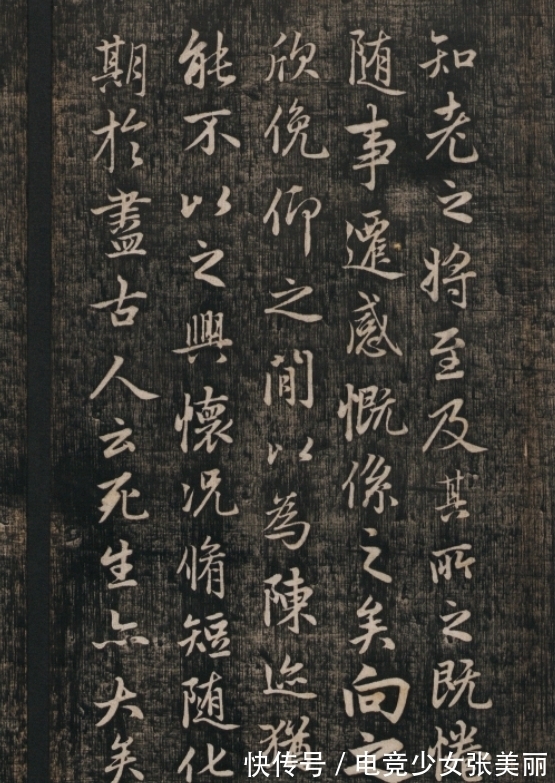 知老之将至及其所之既惓
随事遷感慨係之矣向之
欣俛仰之閒以為陳迹猶
能不以之興懷况脩短随化
期於盡古人云死生亦大矣
快传号 / 电竞少女张美丽